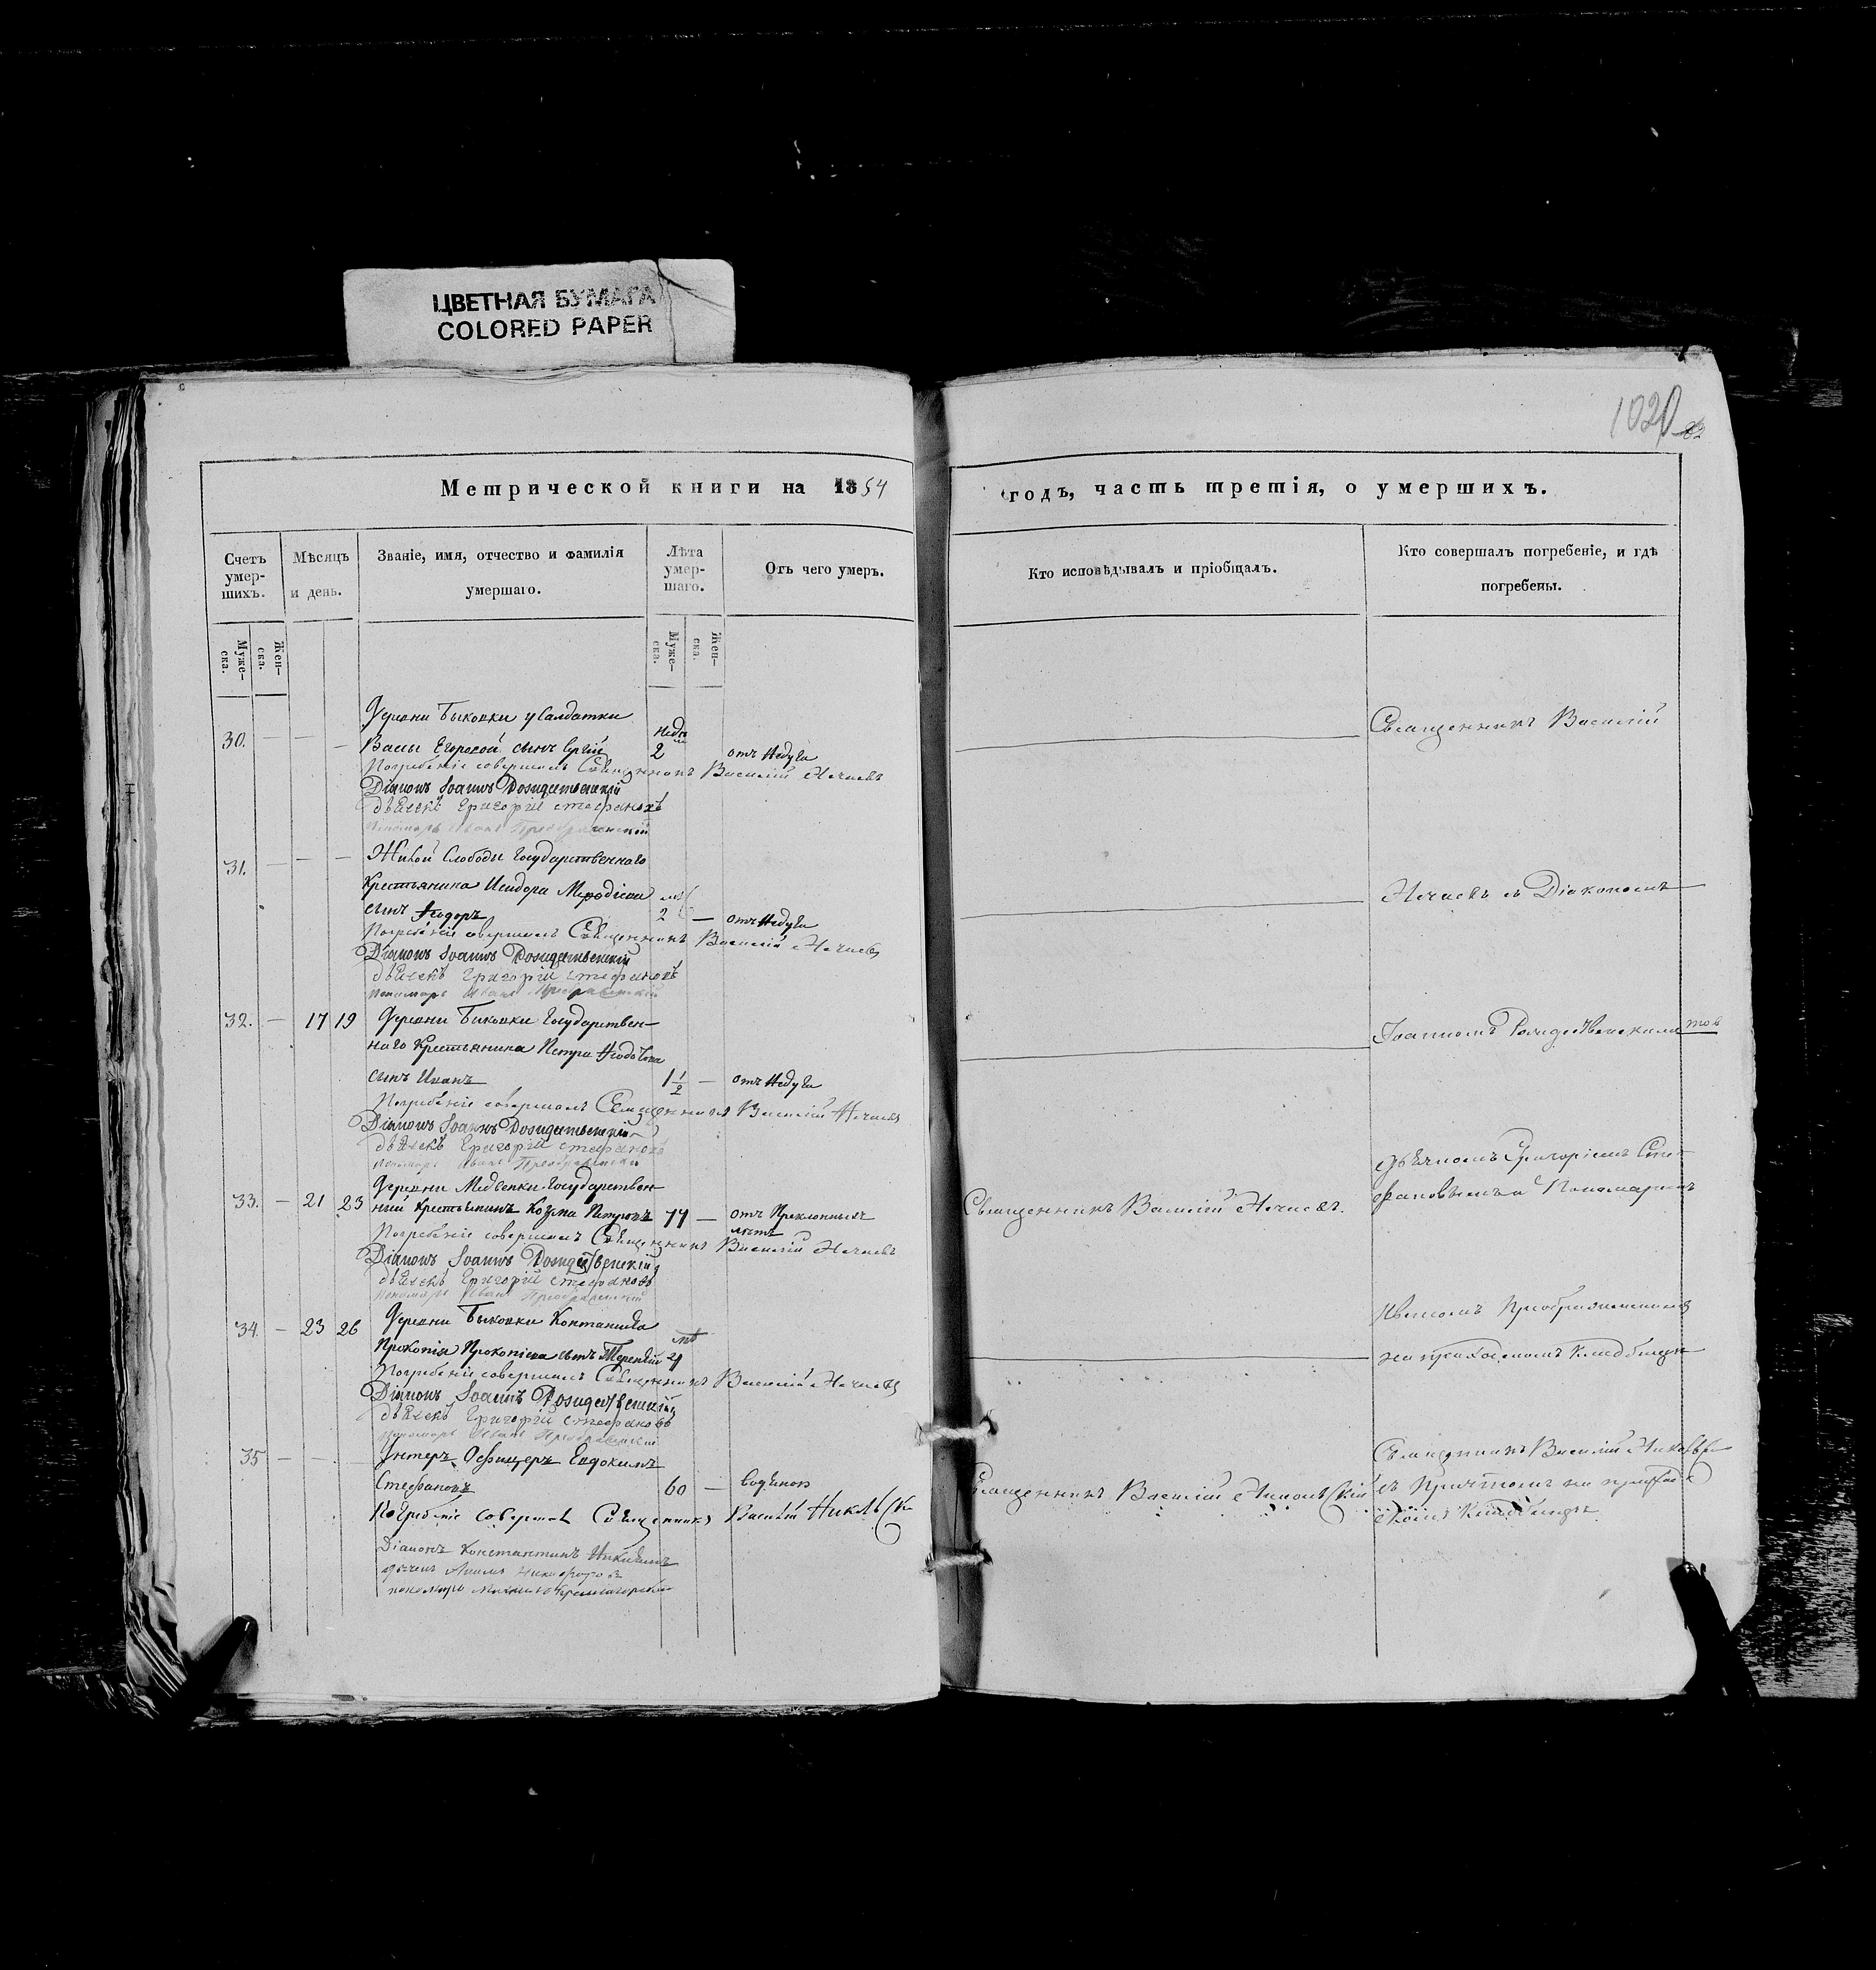 ЦВЕТНАЯ БУМАГА
COLORED PAPER
1020
Метрической книги на 1854
годъ, часть третія, о умершихъ.
Счетъ умер-шихъ.
Мѣсяцъ и день.
Званіе, имя, отчество и фамилія умершаго.
Лѣта умер-шаго.
Отъ чего умеръ.
Кто исповѣдывалъ и пріобщалъ.
Кто совершалъ погребеніе, и гдѣ погребены.
Муже-ска.
Жен-ска.
Муже-ска.
Жен-ска.
Деревни Быковки у Салдатки
30. — — — Егоровой сынъ Сергій 2 отъ Недуга
Погребеніе совершалъ Священникъ Василій Нечаевъ
Діаконъ Іоаннъ Рождественскій
дьячекъ Григорій Стефановъ
пономарь Иванъ Преображенскій
Священникъ Василій
31. — — — Слободы Государственнаго
Крестьянина Исидора
сынъ Ѳеодоръ 2 — отъ Недуга
Погребеніе совершалъ Священникъ Василій Нечаевъ
Діаконъ Іоаннъ Рождественскій
дьячекъ Григорій Стефановъ
пономарь Иванъ Преображенскій
Нечаевъ съ Діакономъ
32. — 17 19 Деревни Быковки Государствен-
наго Крестьянина Петра
сынъ Иванъ 1 1/2 — отъ Недуга
Погребеніе совершалъ Священникъ Василій Нечаевъ
Діаконъ Іоаннъ Рождественскій
дьячекъ Григорій Стефановъ
пономарь Иванъ Преображенскій
Іоанномъ Рождественскимъ
33. — 21 23 Деревни Государствен-
ный Крестьянинъ Козма Петровъ 77 — отъ Преклонныхъ лѣтъ
Погребеніе совершалъ Священникъ Василій Нечаевъ
Діаконъ Іоаннъ Рождественскій
дьячекъ Григорій Стефановъ
пономарь Иванъ Преображенскій
Священникъ Василій Нечаевъ.
Дьячкомъ Григоріемъ Сте-
фановымъ и Пономаремъ
34. — 23 26 Деревни Быковки
Прокопія Прокопіева сынъ Терентій
Погребеніе совершалъ Священникъ Василій Нечаевъ
Діаконъ Іоаннъ Рождественскій
дьячекъ Григорій Стефановъ
пономарь Иванъ Преображенскій
Иваномъ Преображенскимъ
на приходскомъ кладбищѣ
35 — — — Унтеръ Офицеръ Евдокимъ
Стефановъ 60 —
Погребеніе совершалъ Священникъ Василій
Діаконъ Константинъ
пономарь
Священникъ Василій
Священникъ Василій
съ Причтомъ на приход-
скомъ кладбищѣ